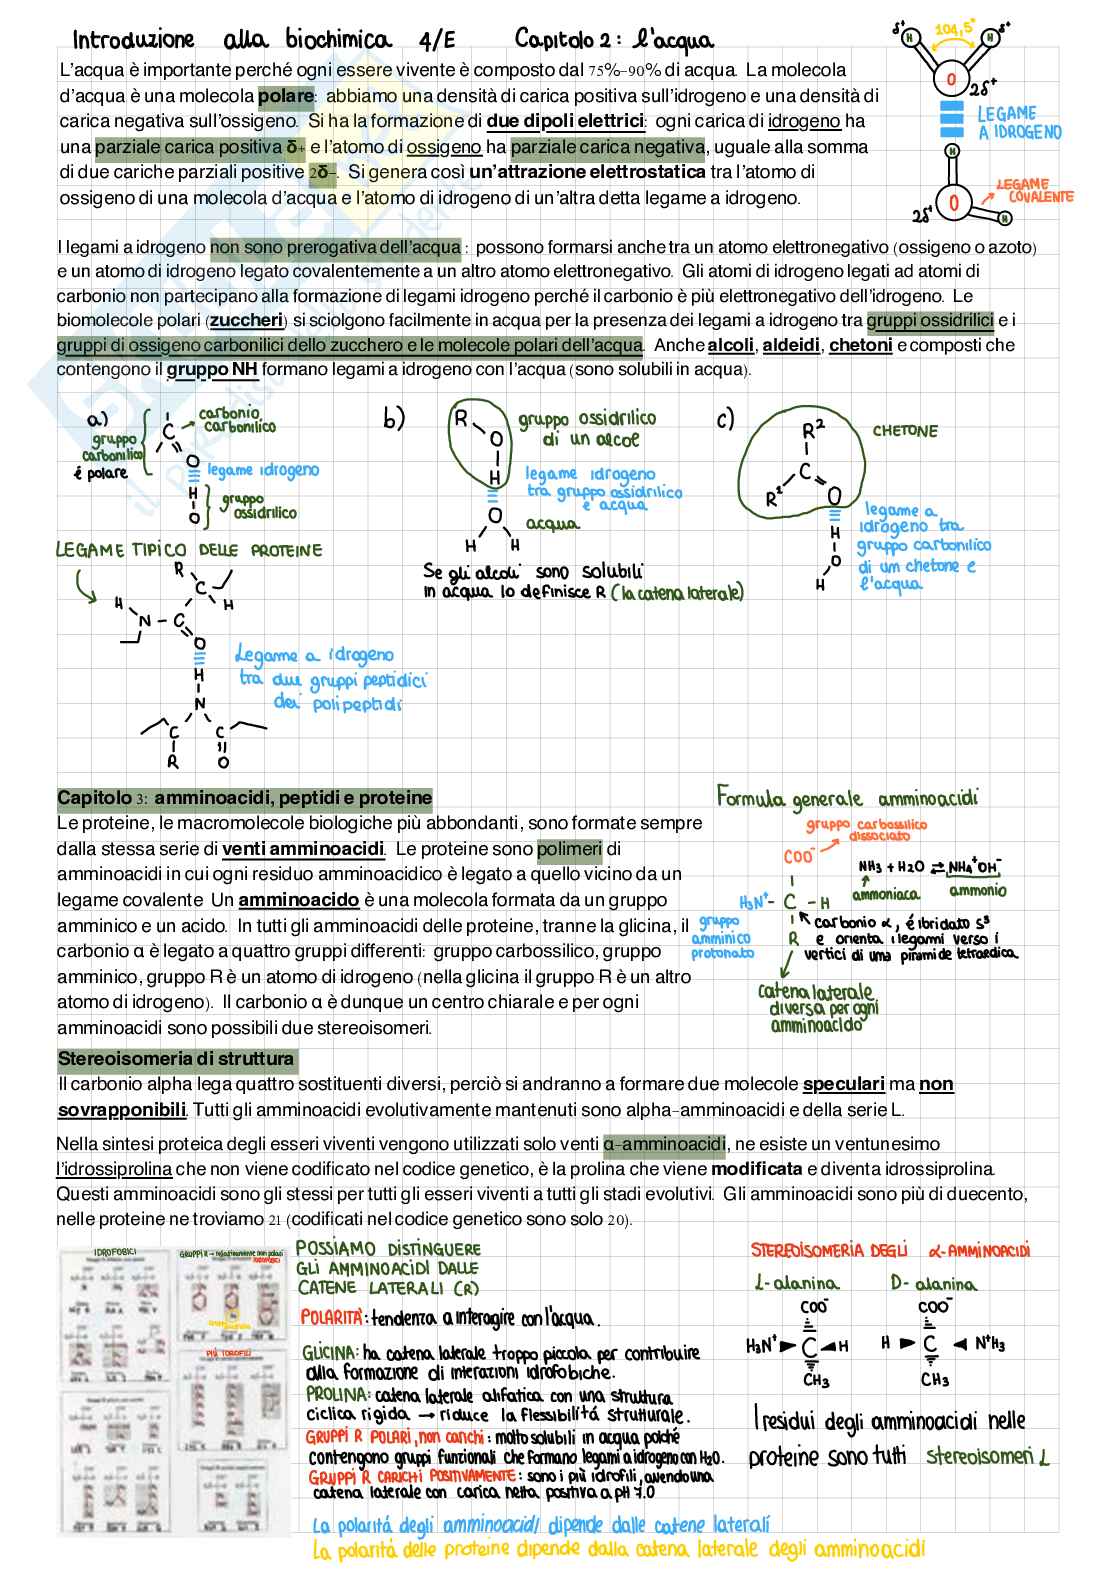 Introduzione alla biochimica 4/E Capitolo 2: l'acqua
L'acqua è importante perché ogni essere vivente è composto dal 75%-90% di acqua. La molecola
d'acqua è una molecola polare: abbiamo una densità di carica positiva sull'idrogeno e una densità di
carica negativa sull'ossigeno. Si ha la formazione di due dipoli elettrici: ogni carica di idrogeno ha
una parziale carica positiva δ+ e l'atomo di ossigeno ha parziale carica negativa, uguale alla somma
di due cariche parziali positive 2δ-. Si genera così un'attrazione elettrostatica tra l'atomo di
ossigeno di una molecola d'acqua e l'atomo di idrogeno di un'altra detta legame a idrogeno.
δ+ 104,5° δ+
H H
O
2δ+
LEGAME
A IDROGENO
H
LEGAME
COVALENTE
O
2δ+ H
I legami a idrogeno non sono prerogativa dell'acqua : possono formarsi anche tra un atomo elettronegativo (ossigeno o azoto)
e un atomo di idrogeno legato covalentemente a un altro atomo elettronegativo. Gli atomi di idrogeno legati ad atomi di
carbonio non partecipano alla formazione di legami idrogeno perché il carbonio è più elettronegativo dell'idrogeno. Le
biomolecole polari (zuccheri) si sciolgono facilmente in acqua per la presenza dei legami a idrogeno tra gruppi ossidrilici e i
gruppi di ossigeno carbonilici dello zucchero e le molecole polari dell'acqua. Anche alcoli, aldeidi, chetoni e composti che
contengono il gruppo NH formano legami a idrogeno con l'acqua (sono solubili in acqua).
a)
gruppo
carbonilico
é polare
carbonio
carbonilico
C
O
legame idrogeno
H
O
gruppo
ossidrilico
b)
R
O
H
gruppo ossidrilico
di un alcol
legame idrogeno
tra gruppo ossidrilico
e acqua
O
acqua
H H
Se gli alcoli sono solubili
in acqua lo definisce R (la catena laterale)
c)
R²
CHETONE
C
R² O
legame a
idrogeno tra
gruppo carbonilico
di um chetone e
l'acqua
H
O
H
LEGAME TIPICO DELLE PROTEINE
R
C
H H
N C
O
Legame a idrogeno
tra due gruppi peptidici
dei polipeptidi
H
N
C C
R O
Capitolo 3: amminoacidi, peptidi e proteine
Le proteine, le macromolecole biologiche più abbondanti, sono formate sempre
dalla stessa serie di venti amminoacidi. Le proteine sono polimeri di
amminoacidi in cui ogni residuo amminoacidico è legato a quello vicino da un
legame covalente Un amminoacido è una molecola formata da un gruppo
amminico e un acido. In tutti gli amminoacidi delle proteine, tranne la glicina, il
carbonio α è legato a quattro gruppi differenti: gruppo carbossilico, gruppo
amminico, gruppo R è un atomo di idrogeno (nella glicina il gruppo R è un altro
atomo di idrogeno). Il carbonio α è dunque un centro chiarale e per ogni
amminoacidi sono possibili due stereoisomeri.
Formula generale amminoacidi
gruppo carbossilico
dissociato
COO⁻
NH3 + H2O ⇌ NH4⁺OH⁻
ammoniaca ammonio
H3N⁺- C - H
gruppo
amminico
protonato
R
carbonio α, é ibridato s³
e orienta i legami verso i
vertici di una piramide tetraedica
catena laterale
diversa per ogni
amminoacido
Stereoisomeria di struttura
Il carbonio alpha lega quattro sostituenti diversi, perciò si andranno a formare due molecole speculari ma non
sovrapponibili. Tutti gli amminoacidi evolutivamente mantenuti sono alpha-amminoacidi e della serie L.
Nella sintesi proteica degli esseri viventi vengono utilizzati solo venti α-amminoacidi, ne esiste un ventunesimo
l'idrossiprolina che non viene codificato nel codice genetico, è la prolina che viene modificata e diventa idrossiprolina.
Questi amminoacidi sono gli stessi per tutti gli esseri viventi a tutti gli stadi evolutivi. Gli amminoacidi sono più di duecento,
nelle proteine ne troviamo 21 (codificati nel codice genetico sono solo 20).
IDROFOBICI
GRUPPI R → relativamente non polari
IDROFOBICI
PIÙ IDROFILI
POSSIAMO DISTINGUERE
GLI AMMINOACIDI DALLE
CATENE LATERALI (R)
POLARITÀ: tendenza a interagire con l'acqua.
GLICINA: ha catena laterale troppo piccola per contribuire
alla formazione di interazioni idrofobiche.
PROLINA: catena laterale alifatica con una struttura
ciclica rigida → riduce la flessibilitá strutturale.
GRUPPI R POLARI, non carichi: molto solubili in acqua poiché
contengono gruppi funzionali che formano legami a idrogeno con H2O.
GRUPPI R CARICHI POSITIVAMENTE: sono i più idrofili, avendo una
catena laterale con carica netta positiva a pH 7.0
La polaritá degli amminoacidi dipende dalle catene laterali
La polarità delle proteine dipende dalla catena laterale degli amminoacidi
STEREOISOMERIA DEGLI α-AMMINOACIDI
L-alanina D-alanina
COO⁻ COO⁻
H3N⁺ C H H C N⁺H3
CH3 CH3
I residui degli amminoacidi nelle
proteine sono tutti stereoisomeri L